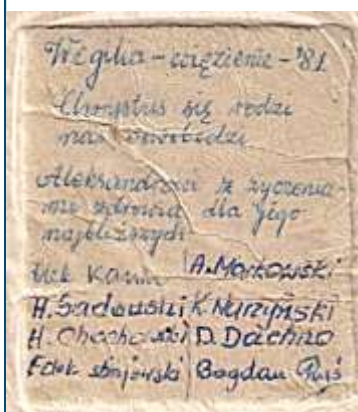 Wigilia - więzienie - '81
Chrystus się rodzi
nas oswobodzi
Aleksandrowi ze życzenia-
mi zdrowia dla jego
najbliższych
A. Markowski
H. Sadowski K. Murzyński
H. Chochowski D. Dachno
Edek Bogdan